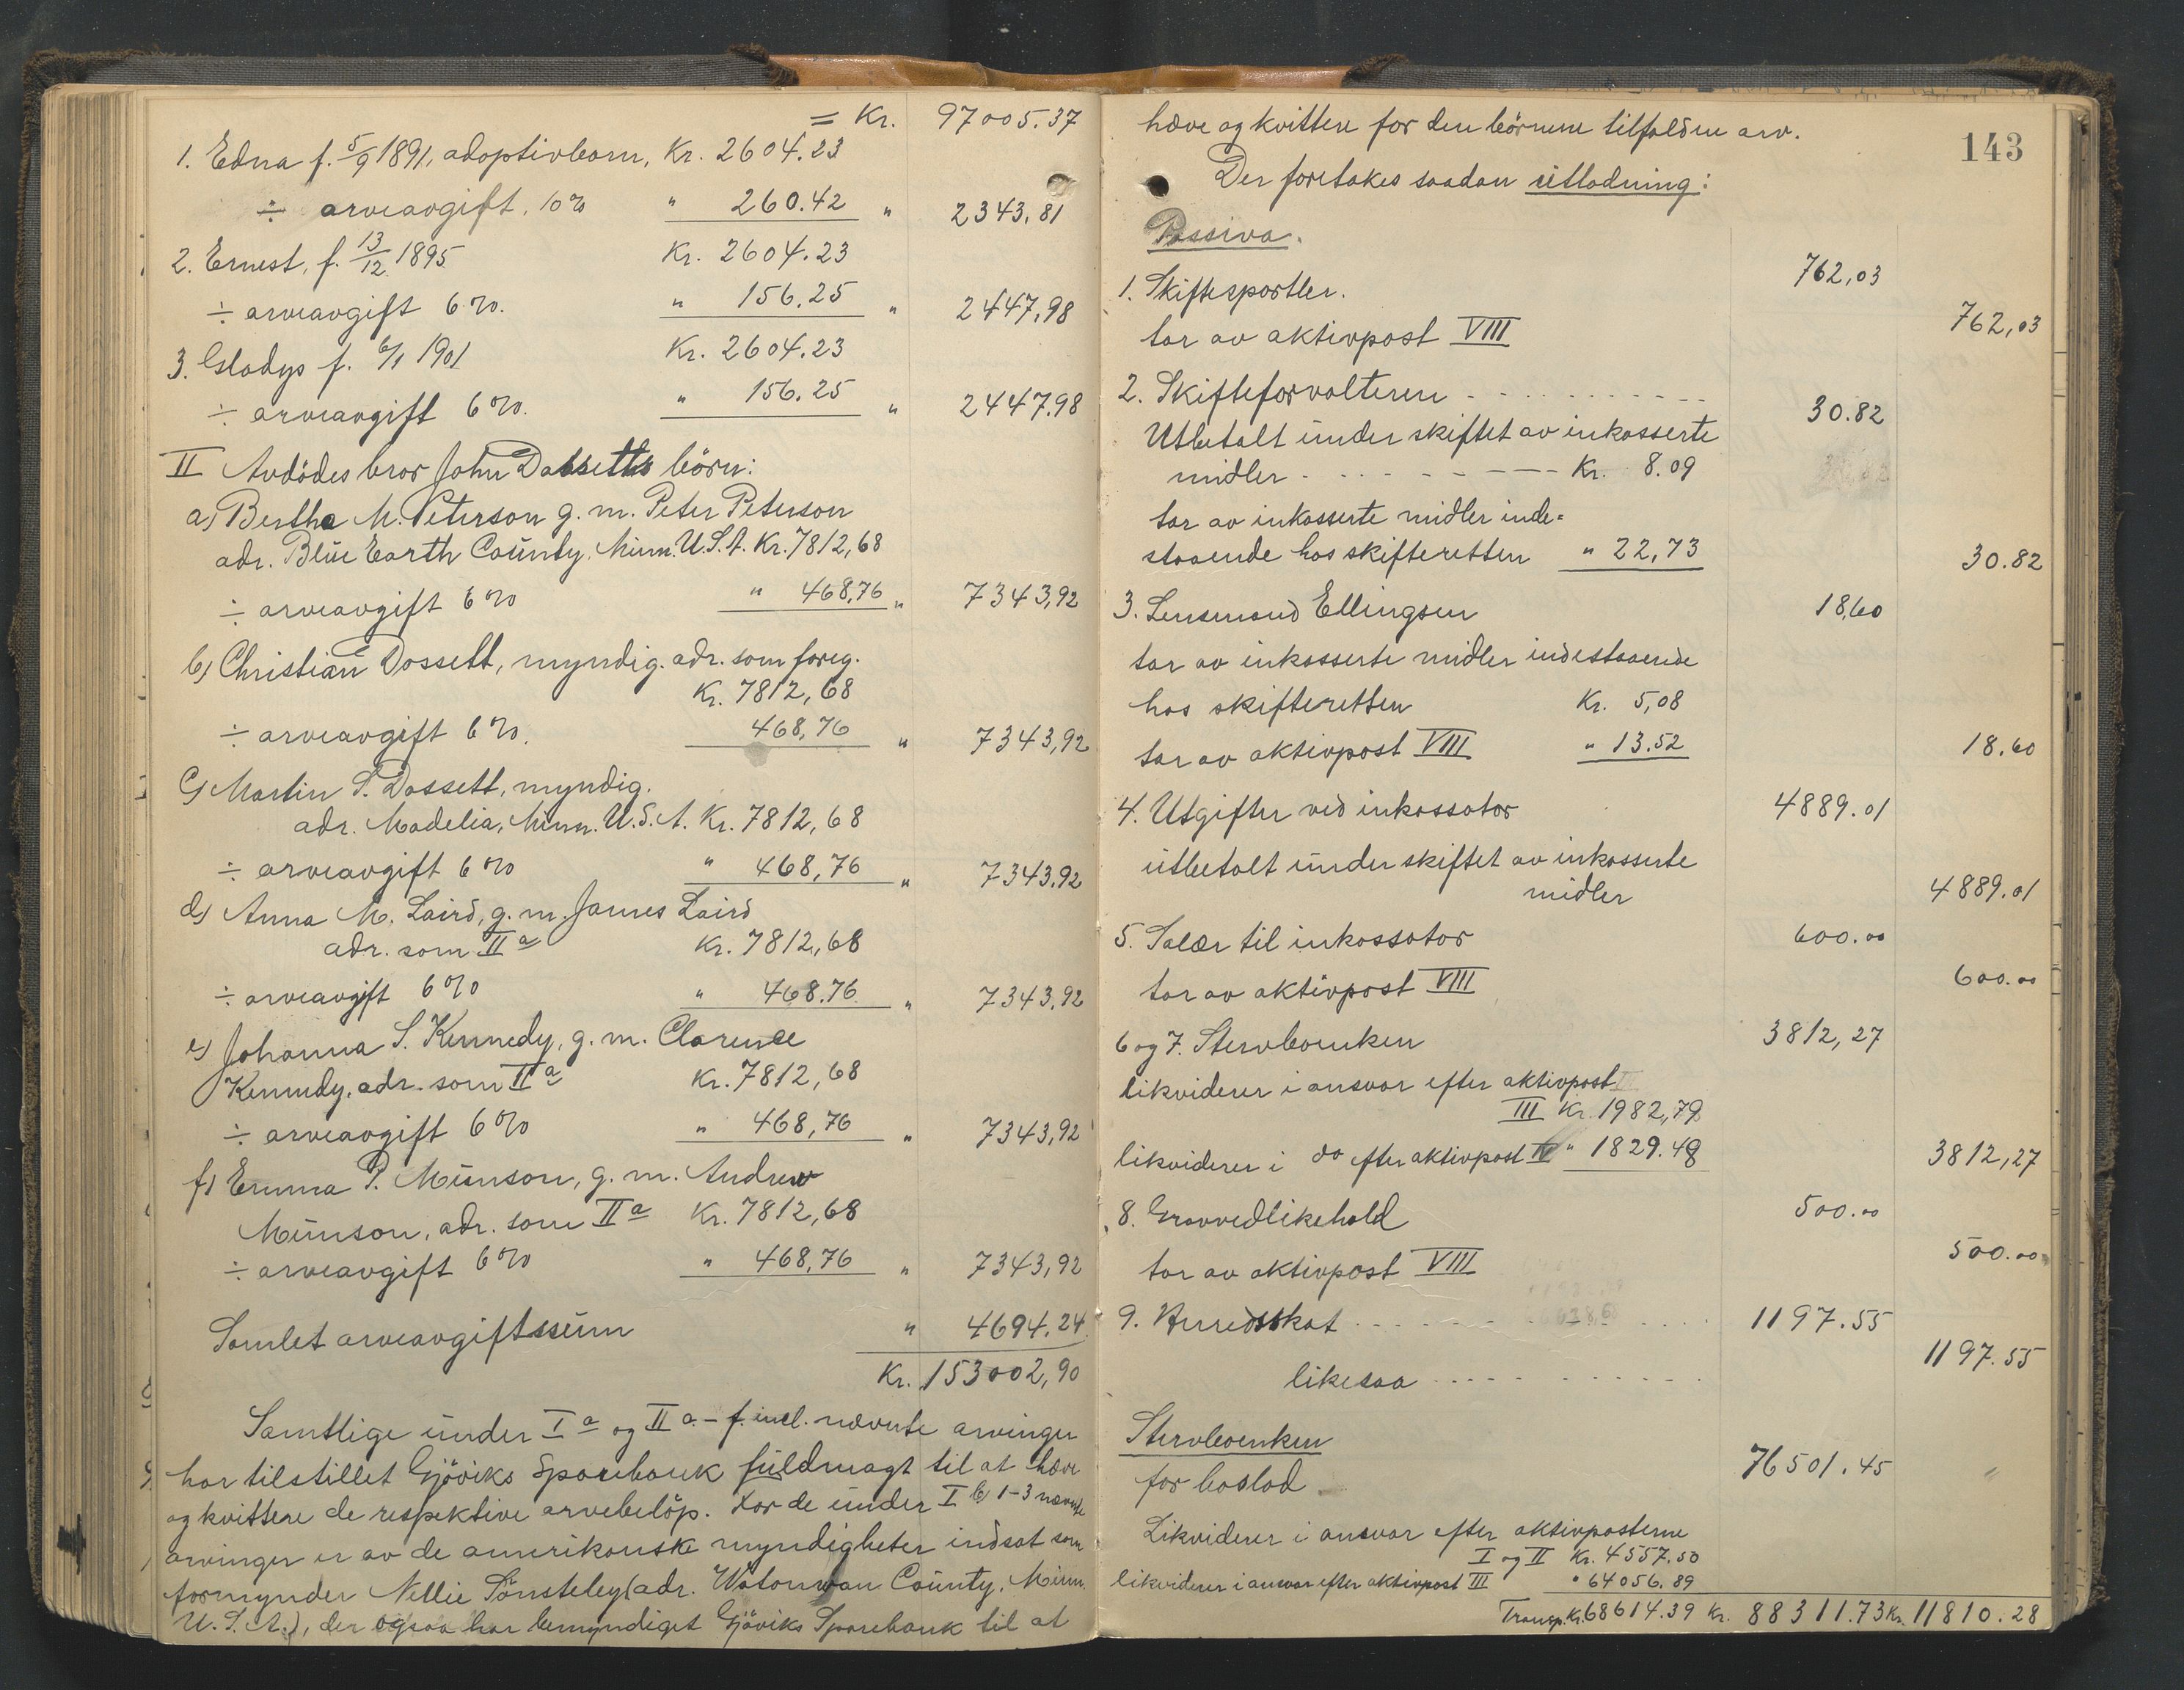 = Kr. 97005.37
1. Edna f. 5/9 1891, adoptivbarn, Kr. 2604.23
÷ arveavgift, 10% " 260.42 " 2343,81
2. Ernest, f. 13/12 1895 Kr. 2604.23
÷ arveavgift 6%. " 156.25 " 2447,98
3. Gladys f. 6/1 1901 Kr. 2604.23
÷ arveavgift 6%. " 156.25 " 2447.98
II Avdödes bror John Dassetts börn:
a) Bertha M. Peterson g. m. Peter Peterson
adr. Blue Earth County, Minn. U.S.A. Kr. 7812,68
÷ arveavgift 6% " 468,76 " 7343,92
b) Christian Dossett, myndig. adr. som foreg.
Kr. 7812,68
÷ arveavgift 6%. 468,76 " 7343,92
c) Martin S. Dassett, myndig.
adr. Madelia, Minn. U.S.A. Kr. 7812,68
÷ arveavgift 6% " 468,76 " 7343.92
d) Anna M. Laird, g. m. James Laird
adr. som II a Kr. 7812,68
÷ arveavgift 6% " 468.76 " 7343,92
e) Johanna S. Kennedy, g. m. Clarence
Kennedy, adr. som II a Kr. 7812,68
÷ arveavgift 6% " 468,76 " 7343,92
f) Emma P. Munson, g. m. Andrew
Munson, adr. som II a Kr. 7812,68
÷ arveavgift 6% " 468,76 " 7343,92
Samlet arveavgiftssum " 4694.24
Kr. 153002,90
Samtlige under I a og II a - f. incl. nævnte arvinger
har tilstillet Gjöviks Sparebank fuldmagt til at hæve
og kvittere de respektive arvebelöp. For de under I b) 1-3 nævnte
arvinger er av de amerikanske myndigheter indsat som
formynder Nellie Tönsteley (adr. Watonwan County, Minn.
U.S.A.), der ogsaa har bemyndiget Gjöviks Sparebank til at
143
hæve og kvittere for den börnene tilfaldne arv.
Der foretakes saadan utlodning:
Passiva.
1. Skiftesportler. 762,03
tar av aktivpost VIII 762,03
2. Skifteforvalteren 30.82
Utbetalt under skiftet av inkasserte
midler Kr. 8.09
tar av inkasserte midler inde=
staaende hos skifteretten " 22,73 30.82
3. Lensmand Ellingsen 18,60
tar av inkasserte midler indestaaende
hos skifteretten Kr. 5,08
tar av aktivpost VIII " 13.52 18.60
4. Utgifter ved inkassator 4889.01
utbetalt under skiftet av inkasserte
midler 4889.01
5. Salær til inkassator 600.00
tar av aktivpost VIII 600.00
6 og 7. Stervboenken 3812,27
likviderer i ansvar efter aktivpost
III Kr. 1982,79
likviderer i do efter aktivpost IV " 1829.48 3812,27
8. Gravvedlikehold 500.00
tar av aktivpost VIII 500.00
9. Herredsskat 1197.55
likesaa 1197.55
Stervboenken
for boslod 76501.45 "
Likviderer i ansvar efter aktivposterne
I og II Kr. 4557.50
likviderer i ansvar efter aktivpost III " 64056.89
Transp. Kr. 68614.39 Kr. 88311.73 Kr. 11810.28